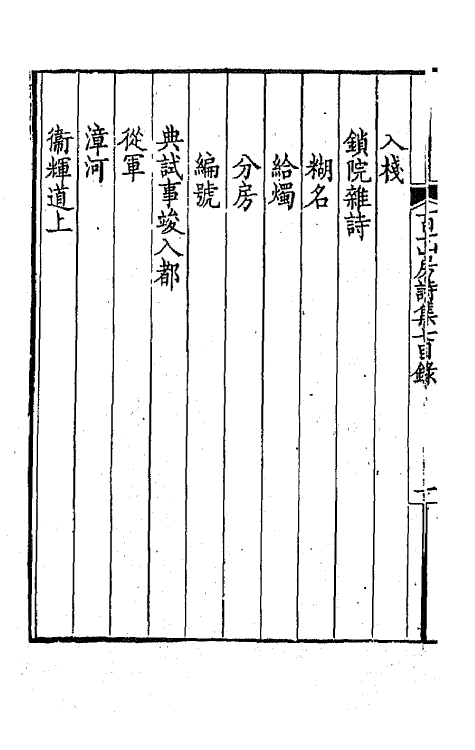 百一山房詩集七目錄
一
入棧
鎖院雜詩
糊名
給燭
分房
編號
典試事竣入都
從軍
漳河
衛輝道上